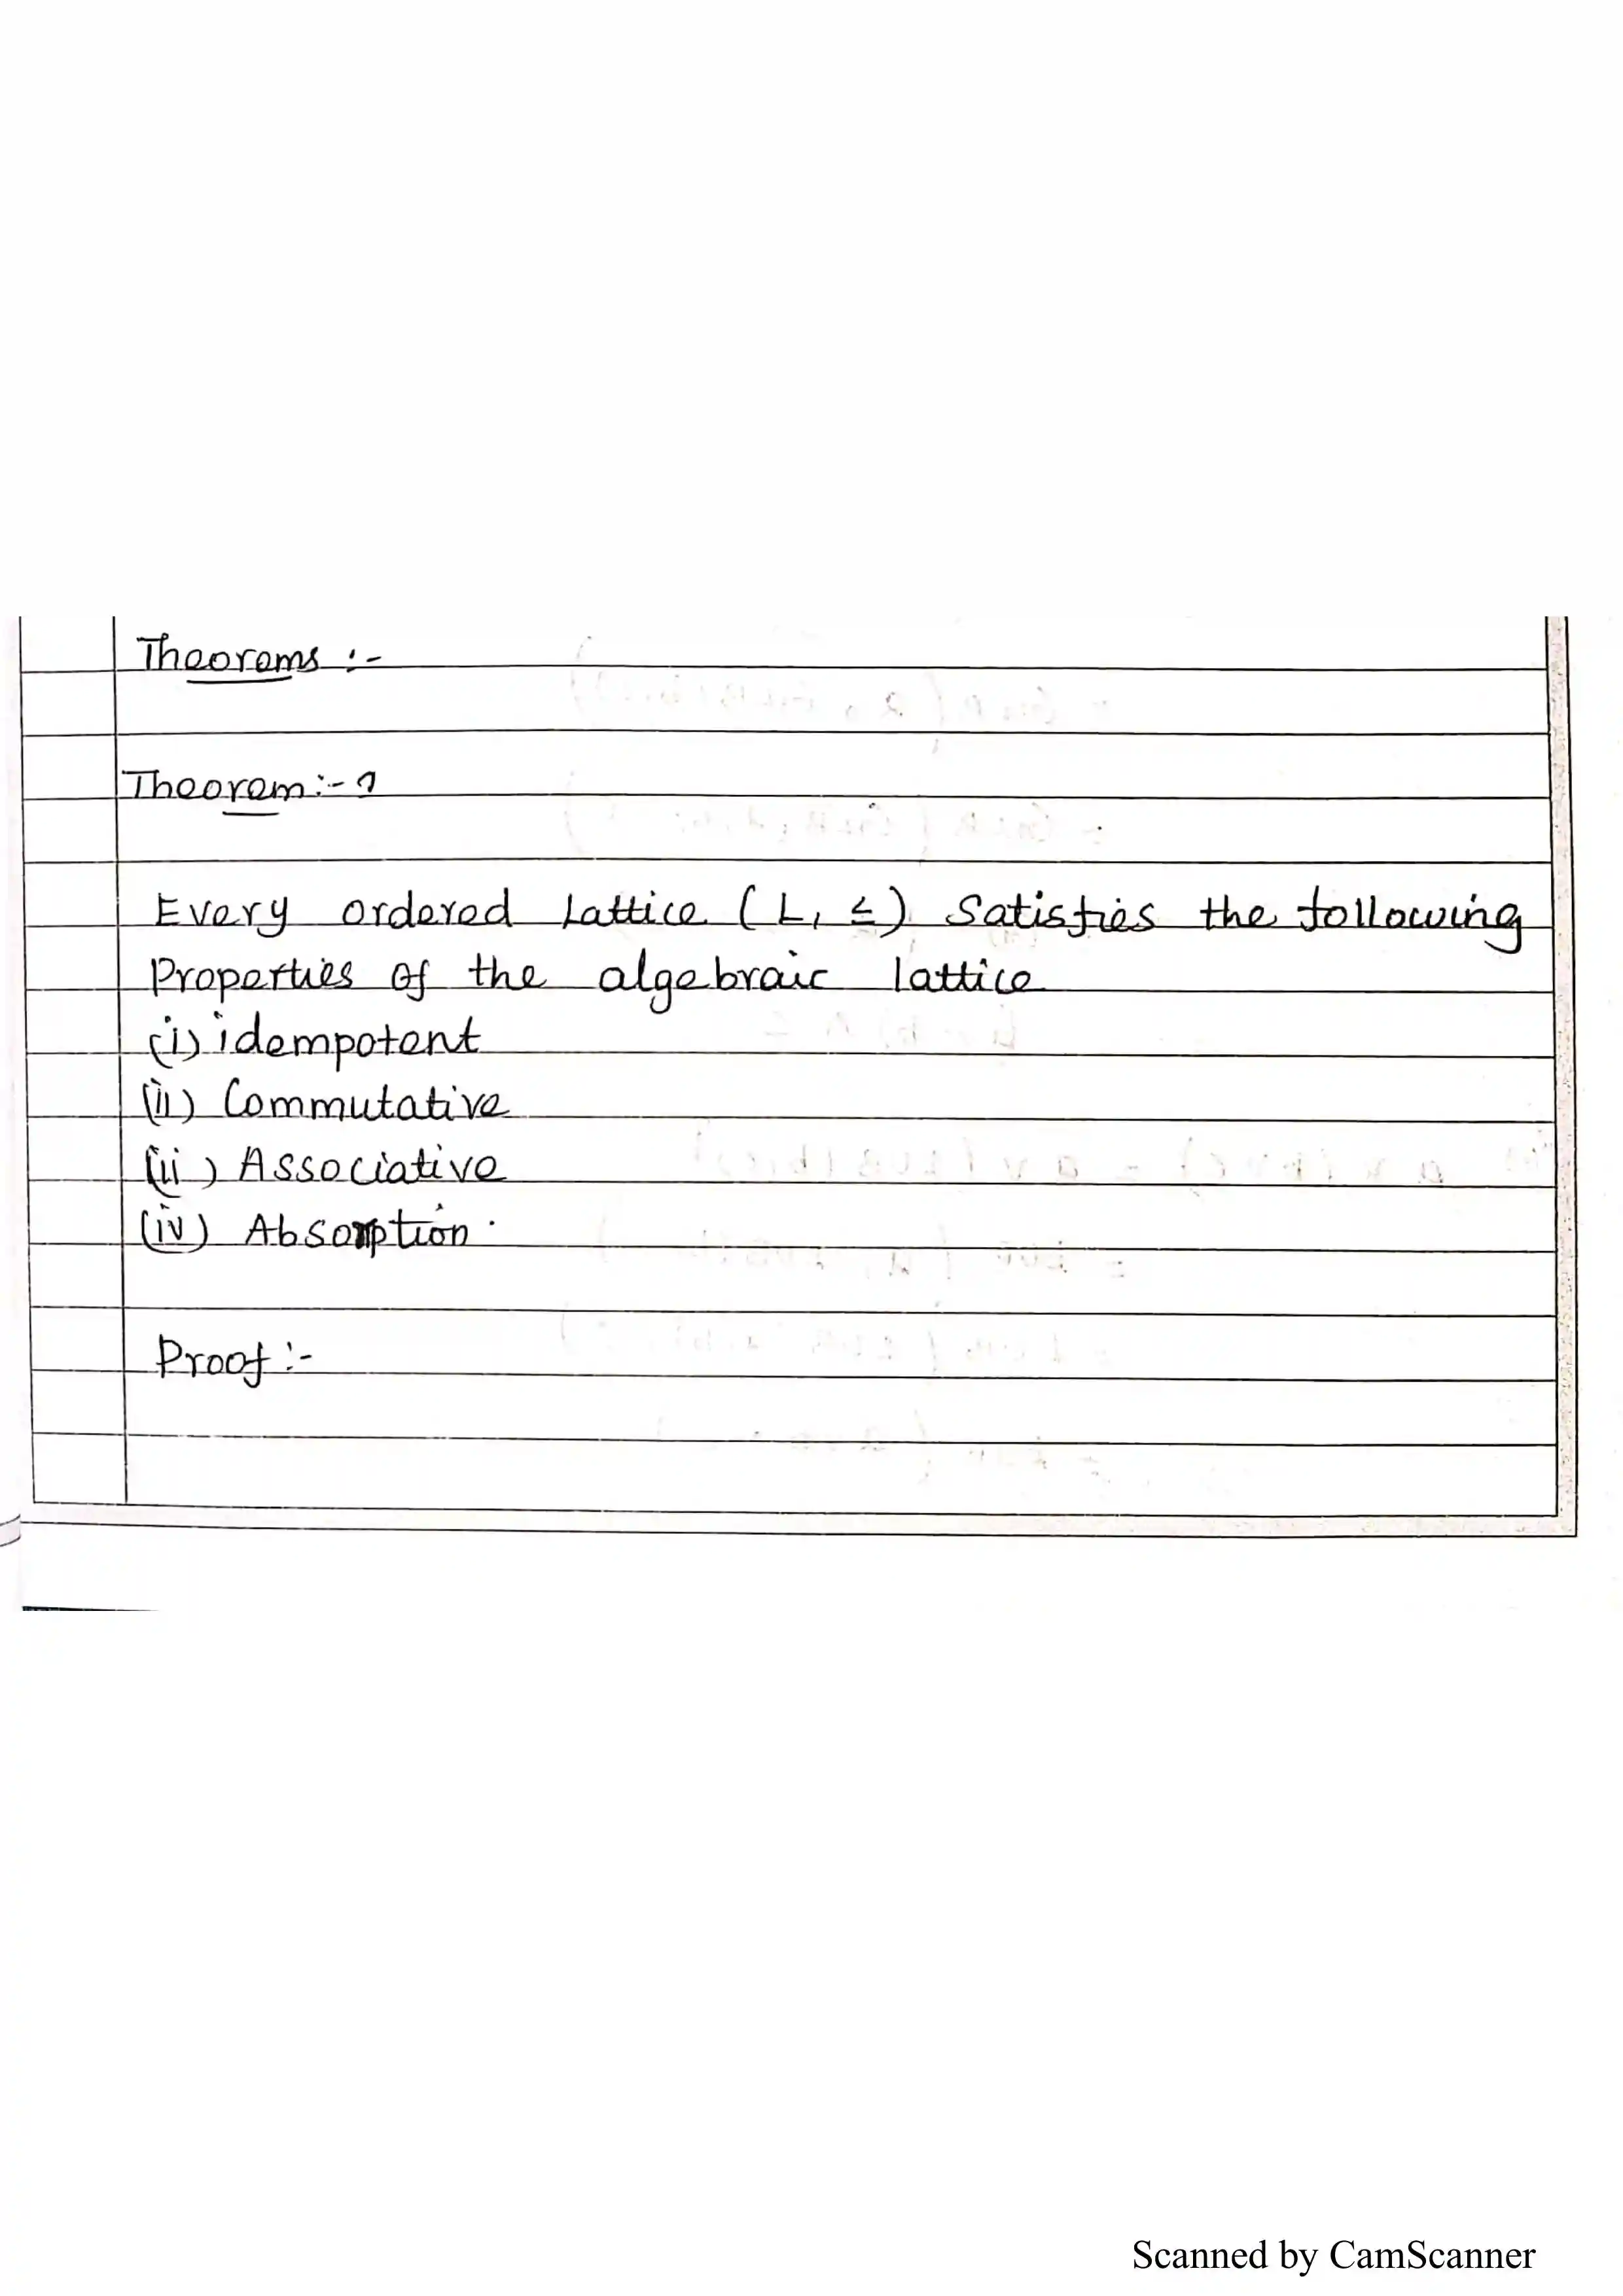 Theorems :-
Theorem :- 1
Every ordered Lattice (L, ≤) Satisfies the following
Properties of the algebraic lattice
(i) idempotent
(ii) Commutative
(iii) Associative
(iv) Absorption.
Proof :-
Scanned by CamScanner